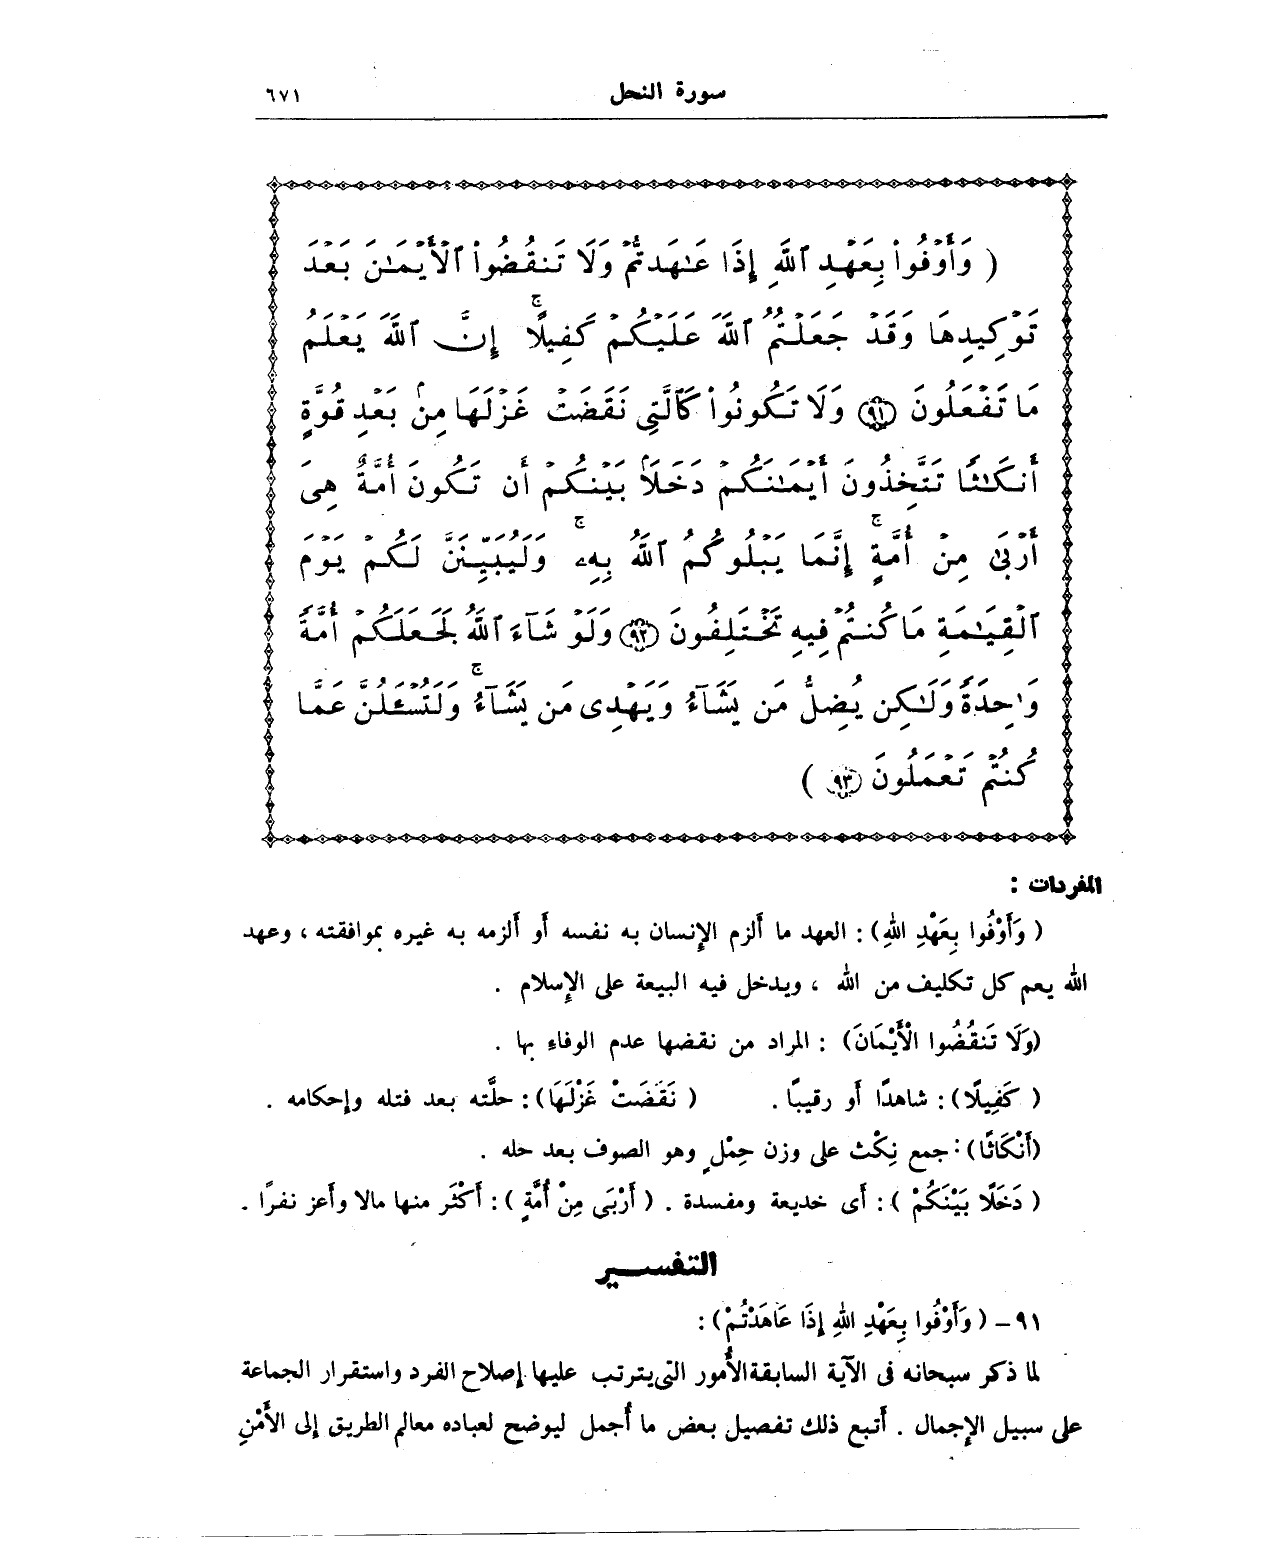 سورة النحل ٦٧١
( وَأَوْفُواْ بِعَهْدِ ٱللَّهِ إِذَا عَـٰهَدتُّمْ وَلَا تَنقُضُواْ ٱلْأَيْمَـٰنَ بَعْدَ
تَوْكِيدِهَا وَقَدْ جَعَلْتُمُ ٱللَّهَ عَلَيْكُمْ كَفِيلًاۚ إِنَّ ٱللَّهَ يَعْلَمُ
مَا تَفْعَلُونَ ﴿٩١﴾ وَلَا تَكُونُواْ كَٱلَّتِى نَقَضَتْ غَزْلَهَا مِنۢ بَعْدِ قُوَّةٍ
أَنكَـٰثًا تَتَّخِذُونَ أَيْمَـٰنَكُمْ دَخَلًاۢ بَيْنَكُمْ أَن تَكُونَ أُمَّةٌ هِىَ
أَرْبَىٰ مِنْ أُمَّةٍۚ إِنَّمَا يَبْلُوكُمُ ٱللَّهُ بِهِۦۚ وَلَيُبَيِّنَنَّ لَكُمْ يَوْمَ
ٱلْقِيَـٰمَةِ مَا كُنتُمْ فِيهِ تَخْتَلِفُونَ ﴿٩٢﴾ وَلَوْ شَآءَ ٱللَّهُ لَجَعَلَكُمْ أُمَّةً
وَٰحِدَةً وَلَـٰكِن يُضِلُّ مَن يَشَآءُ وَيَهْدِى مَن يَشَآءُۚ وَلَتُسْـَٔلُنَّ عَمَّا
كُنتُمْ تَعْمَلُونَ ﴿٩٣﴾ )
المفردات :
( وَأَوْفُوا بِعَهْدِ اللهِ) : العهد ما ألزم الإنسان به نفسه أو ألزمه به غيره بموافقته ، وعهد
الله يعم كل تكليف من الله ، ويدخل فيه البيعة على الإسلام .
(وَلَا تَنقُضُوا الْأَيْمَانَ) : المراد من نقضها عدم الوفاء بها .
( كَفِيلًا) : شاهدًا أو رقيبًا . ( نَقَضَتْ غَزْلَهَا) : حلَّته بعد فتله وإحكامه .
(أَنْكَاثًا) : جمع نِكْث على وزن حِمْلٍ وهو الصوف بعد حله .
( دَخَلًا بَيْنَكُمْ ) : أى خديعة ومفسدة . ( أَرْبَى مِنْ أُمَّةٍ ) : أكْثَر منها مالا وأعز نفرًا .
التفسـير
٩١ – ( وَأَوْفُوا بِعَهْدِ اللهِ إِذَا عَاهَدْتُمْ) :
لما ذكر سبحانه فى الآية السابقة الأُمور التى يترتب عليها إصلاح الفرد واستقرار الجماعة
على سبيل الإجمال . أتبع ذلك تفصيل بعض ما أُجمل ليوضح لعباده معالم الطريق إلى الأَمْنِ